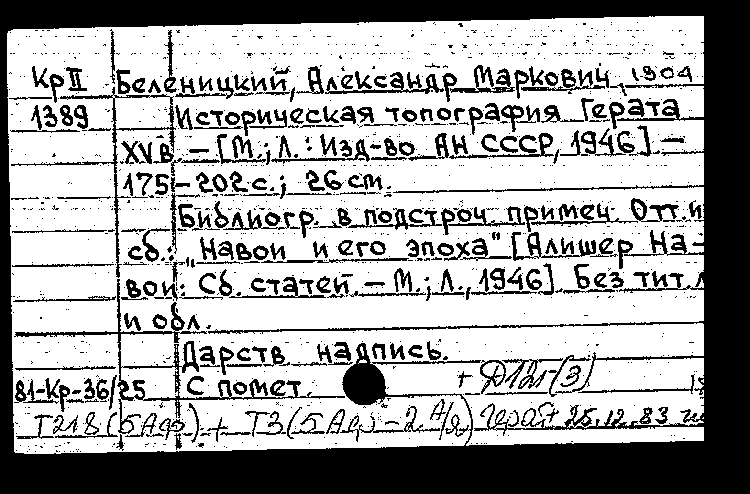 Кр II Беленицкий, Александр Маркович, 1904
1389 Историческая топография Герата
XV в. — [М.; Л.: Изд-во АН СССР, 1946] —
175-202 с.; 26 см.
Библиогр. в подстроч. примеч. Отт. и
сб.: „Навои и его эпоха" [Алишер На-
вои: Сб. статей. — М.; Л., 1946]. Без тит. л
и обл.
Дарств. надпись.
81-Кр-36/25 С помет. + Д12г(3)
Т218 (5Аф) + Т3 (5Аф - 2. А/я) Герат 25.12.83